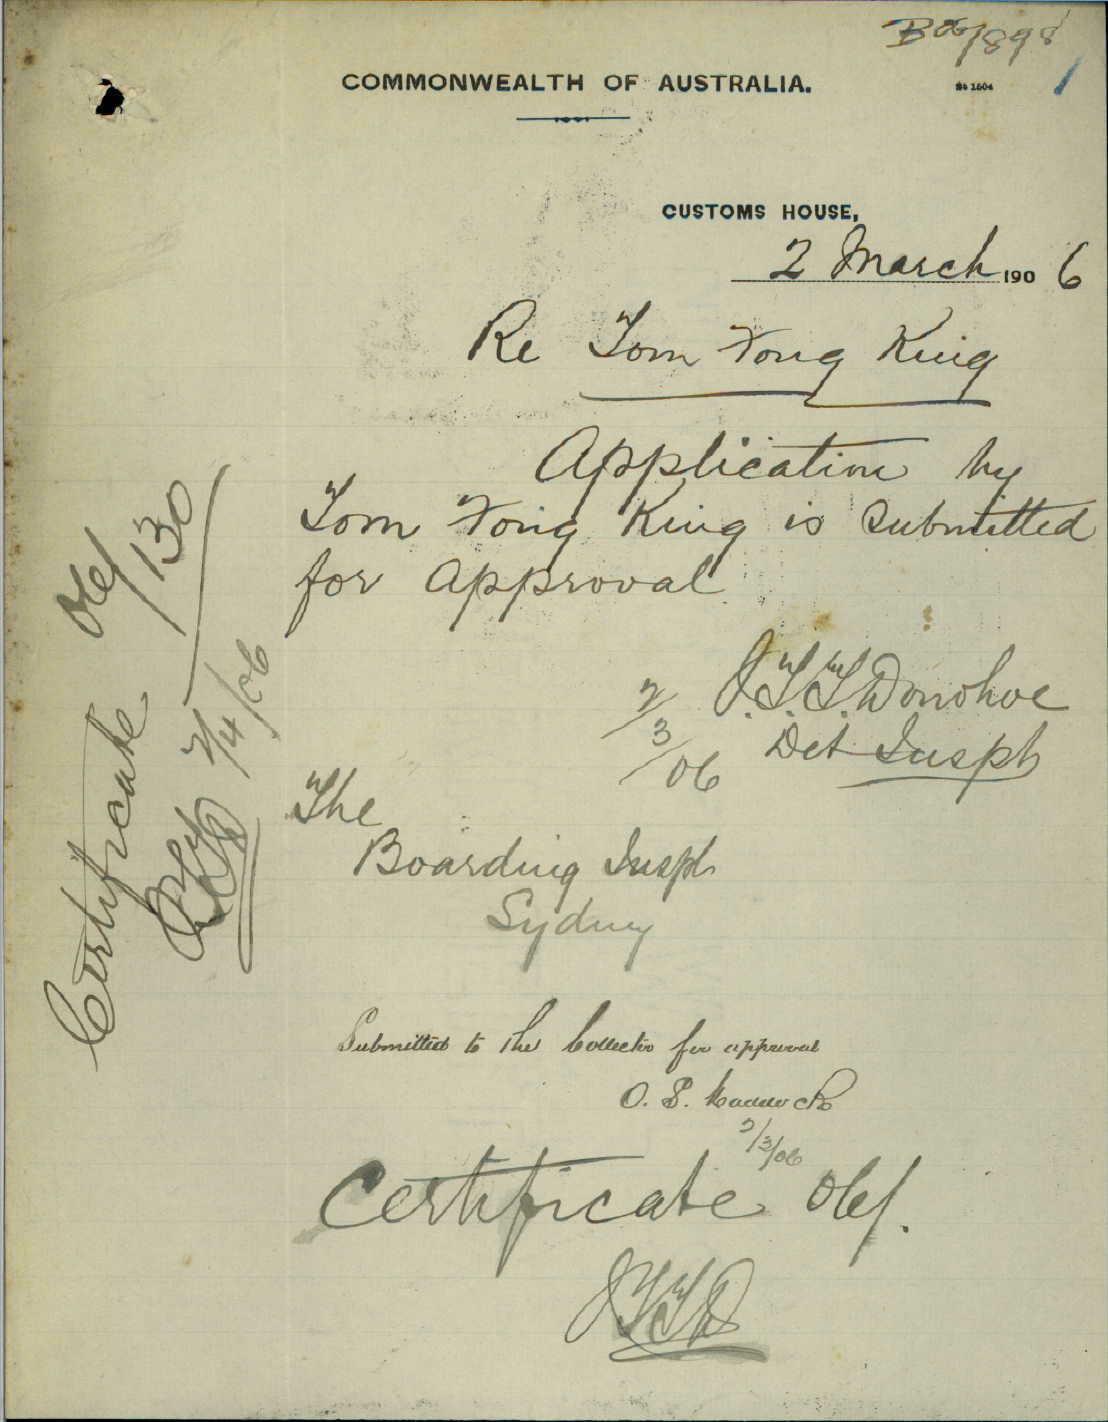 B06/898
1
COMMONWEALTH OF AUSTRALIA.
St 1504
CUSTOMS HOUSE,
2 March 1906
Re Tom Yong King
Application by
Tom Yong King is submitted
for approval
J.T.T. Donohoe
2/3/06
Det Inspr
The
Boarding Inspr
Sydney
Submitted to the Collector for approval
O. S. Maddocks
2/3/06
Certificate
JTTD
Certificate
06/130
JTTD 2/4/06